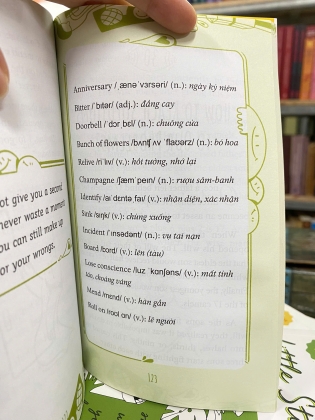 ot give you a second
never waste a moment
ou can still make up
or your wrongs.
Anniversary /ˌænəˈvɜrsəri/ (n.): ngày kỷ niệm
Bitter /ˈbɪtər/ (adj.): đắng cay
Doorbell /ˈdɔrˌbɛl/ (n.): chuông cửa
Bunch of flowers /bʌntʃ ʌv ˈflaʊərz/ (n.): bó hoa
Relive /riˈlɪv/ (v.): hồi tưởng, nhớ lại
Champagne /ʃæmˈpeɪn/ (n.): rượu sâm-banh
Identify /aɪˈdɛntəˌfaɪ/ (v.): nhận diện, xác nhận
Sink /sɪŋk/ (v.): chùng xuống
Incident /ˈɪnsədənt/ (n.): vụ tai nạn
Board /bɔrd/ (v.): lên (tàu)
Lose conscience /luz ˈkɑnʃəns/ (v.): mất tỉnh
táo, choáng váng
Mend /mɛnd/ (v.): hàn gắn
Rull on /rʊol ɑn/ (v.): lê người
173
ttle St